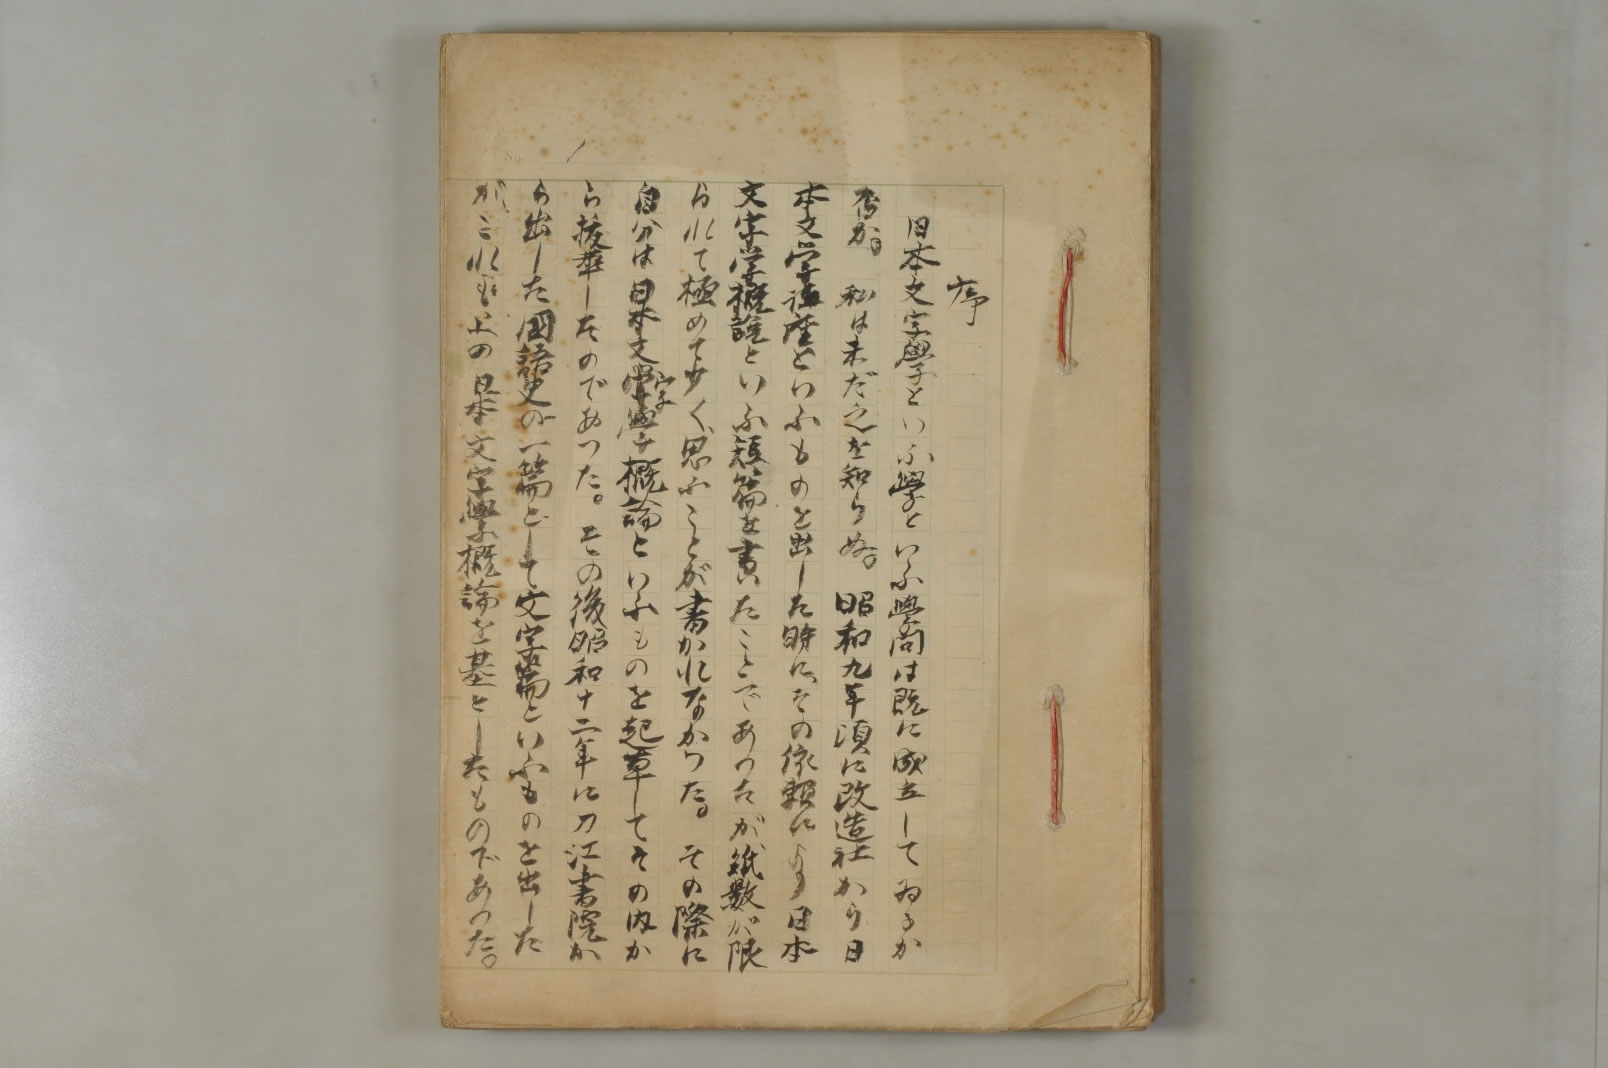 No. 1
序
日本文字學といふ學といふ學問は既に成立してゐるか
否か。私は未だ之を知らぬ。昭和九年頃に改造社から日
本文学講座といふものを出した時に、その依頼により日本
文字学概説といふ短篇を書いたことであつたが、紙数が限
られて極めて少く、思ふことが書かれなかつた。その際に
自分は日本文字學概論といふものを起草してその内か
ら抜萃したのであつた。その後昭和十二年に刀江書院か
ら出した國語史の一篇として文字篇といふものを出した
が、これも上の日本文字學概論を基としたものであつた。